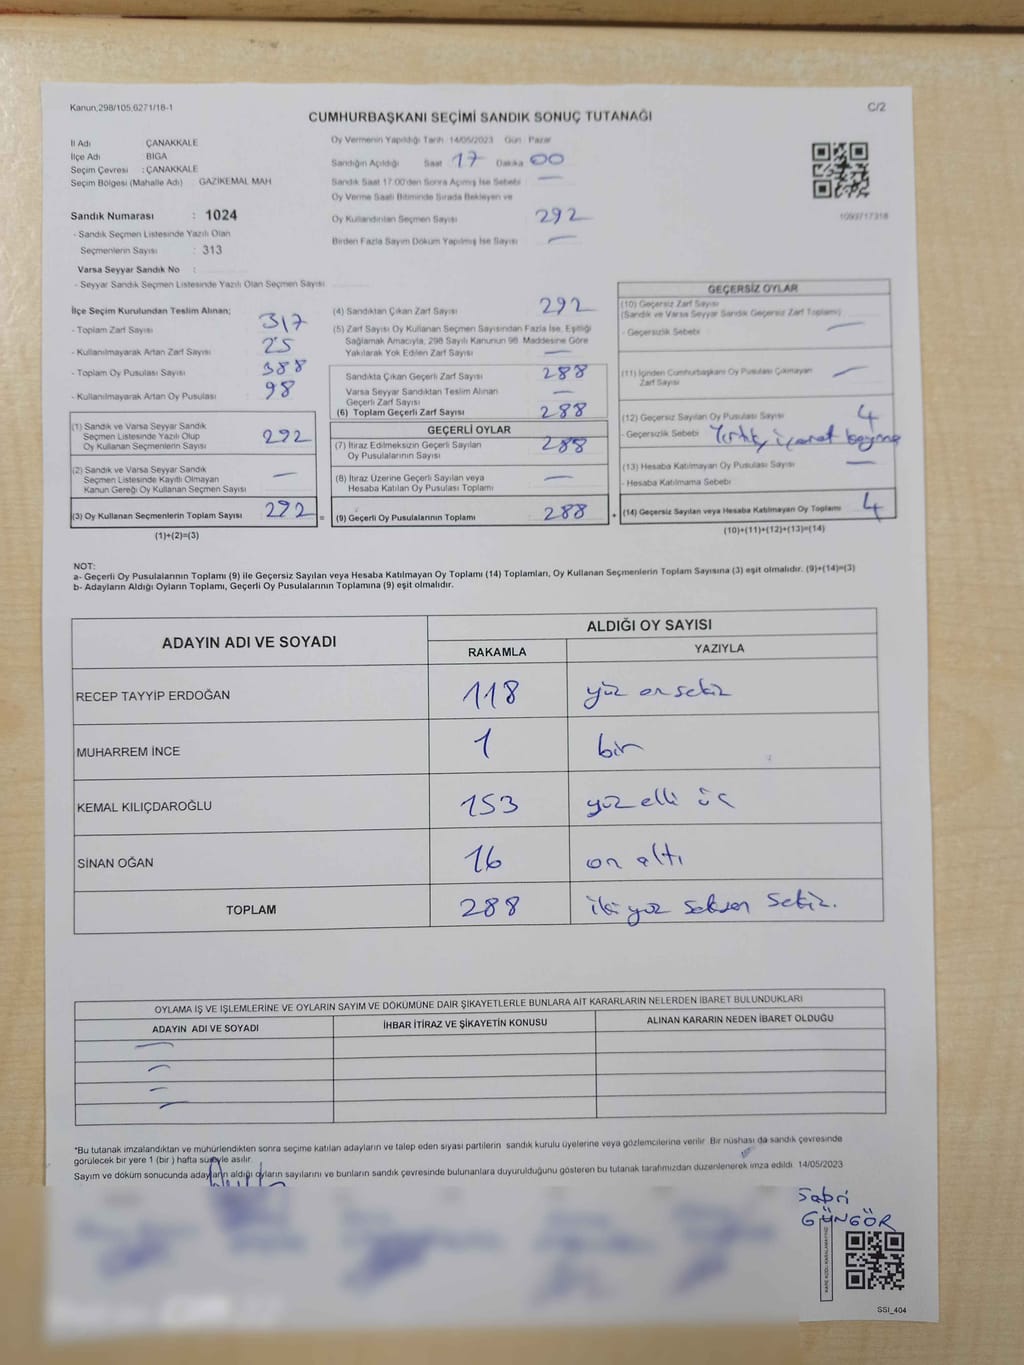 Kanun,298/105,6271/18-1
C/2
CUMHURBAŞKANI SEÇİMİ SANDIK SONUÇ TUTANAĞI
İl Adı ÇANAKKALE
İlçe Adı BIGA
Seçim Çevresi : ÇANAKKALE
Seçim Bölgesi (Mahalle Adı) : GAZİKEMAL MAH
Sandık Numarası : 1024
- Sandık Seçmen Listesinde Yazılı Olan
Seçmenlerin Sayısı : 313
Varsa Seyyar Sandık No :
- Seyyar Sandık Seçmen Listesinde Yazılı Olan Seçmen Sayısı
Oy Vermenin Yapıldığı Tarih 14/05/2023 Gün : Pazar
Sandığın Açıldığı Saat 17 Dakika 00
Sandık Saat 17:00'den Sonra Açılmış İse Sebebi —
Oy Verme Saati Bitiminde Sırada Bekleyen ve
Oy Kullandırılan Seçmen Sayısı 292
Birden Fazla Sayım Döküm Yapılmış İse Sayısı —
1093717318
İlçe Seçim Kurulundan Teslim Alınan;
- Toplam Zarf Sayısı 317
- Kullanılmayarak Artan Zarf Sayısı 25
- Toplam Oy Pusulası Sayısı 388
- Kullanılmayarak Artan Oy Pusulası 98
(1) Sandık ve Varsa Seyyar Sandık
Seçmen Listesinde Yazılı Olup
Oy Kullanan Seçmenlerin Sayısı 292
(2) Sandık ve Varsa Seyyar Sandık
Seçmen Listesinde Kayıtlı Olmayan
Kanun Gereği Oy Kullanan Seçmen Sayısı —
(3) Oy Kullanan Seçmenlerin Toplam Sayısı 292 =
(1)+(2)=(3)
(4) Sandıktan Çıkan Zarf Sayısı 292
(5) Zarf Sayısı Oy Kullanan Seçmen Sayısından Fazla İse, Eşitliği
Sağlamak Amacıyla, 298 Sayılı Kanunun 98. Maddesine Göre
Yakılarak Yok Edilen Zarf Sayısı —
Sandıkta Çıkan Geçerli Zarf Sayısı 288
Varsa Seyyar Sandıktan Teslim Alınan
Geçerli Zarf Sayısı —
(6) Toplam Geçerli Zarf Sayısı 288
GEÇERLİ OYLAR
(7) İtiraz Edilmeksizin Geçerli Sayılan
Oy Pusulalarının Sayısı 288
(8) İtiraz Üzerine Geçerli Sayılan veya
Hesaba Katılan Oy Pusulası Toplamı —
(9) Geçerli Oy Pusulalarının Toplamı 288 +
GEÇERSİZ OYLAR
(10) Geçersiz Zarf Sayısı
(Sandık ve Varsa Seyyar Sandık Geçersiz Zarf Toplamı)
- Geçersizlik Sebebi —
(11) İçinden Cumhurbaşkanı Oy Pusulası Çıkmayan
Zarf Sayısı —
(12) Geçersiz Sayılan Oy Pusulası Sayısı 4
- Geçersizlik Sebebi Yırtık, işaret
(13) Hesaba Katılmayan Oy Pusulası Sayısı —
- Hesaba Katılmama Sebebi
(14) Geçersiz Sayılan veya Hesaba Katılmayan Oy Toplamı 4
(10)+(11)+(12)+(13)=(14)
NOT:
a- Geçerli Oy Pusulalarının Toplamı (9) ile Geçersiz Sayılan veya Hesaba Katılmayan Oy Toplamı (14) Toplamları, Oy Kullanan Seçmenlerin Toplam Sayısına (3) eşit olmalıdır. (9)+(14)=(3)
b- Adayların Aldığı Oyların Toplamı, Geçerli Oy Pusulalarının Toplamına (9) eşit olmalıdır.
ADAYIN ADI VE SOYADI ALDIĞI OY SAYISI
RAKAMLA YAZIYLA
RECEP TAYYİP ERDOĞAN 118 yüz on sekiz
MUHARREM İNCE 1 bir
KEMAL KILIÇDAROĞLU 153 yüz elli üç
SİNAN OĞAN 16 on altı
TOPLAM 288 iki yüz seksen sekiz.
OYLAMA İŞ VE İŞLEMLERİNE VE OYLARIN SAYIM VE DÖKÜMÜNE DAİR ŞİKAYETLERLE BUNLARA AİT KARARLARIN NELERDEN İBARET BULUNDUKLARI
ADAYIN ADI VE SOYADI İHBAR İTİRAZ VE ŞİKAYETİN KONUSU ALINAN KARARIN NEDEN İBARET OLDUĞU
—
—
—
—
*Bu tutanak imzalandıktan ve mühürlendikten sonra seçime katılan adayların ve talep eden siyasi partilerin sandık kurulu üyelerine veya gözlemcilerine verilir. Bir nüshası da sandık çevresinde
görülecek bir yere 1 (bir ) hafta süreyle asılır.
Sayım ve döküm sonucunda adayların aldığı oyların sayılarını ve bunların sandık çevresinde bulunanlara duyurulduğunu gösteren bu tutanak tarafımızdan düzenlenerek imza edildi. 14/05/2023
Sabri
GÜNGÖR
SSI_404